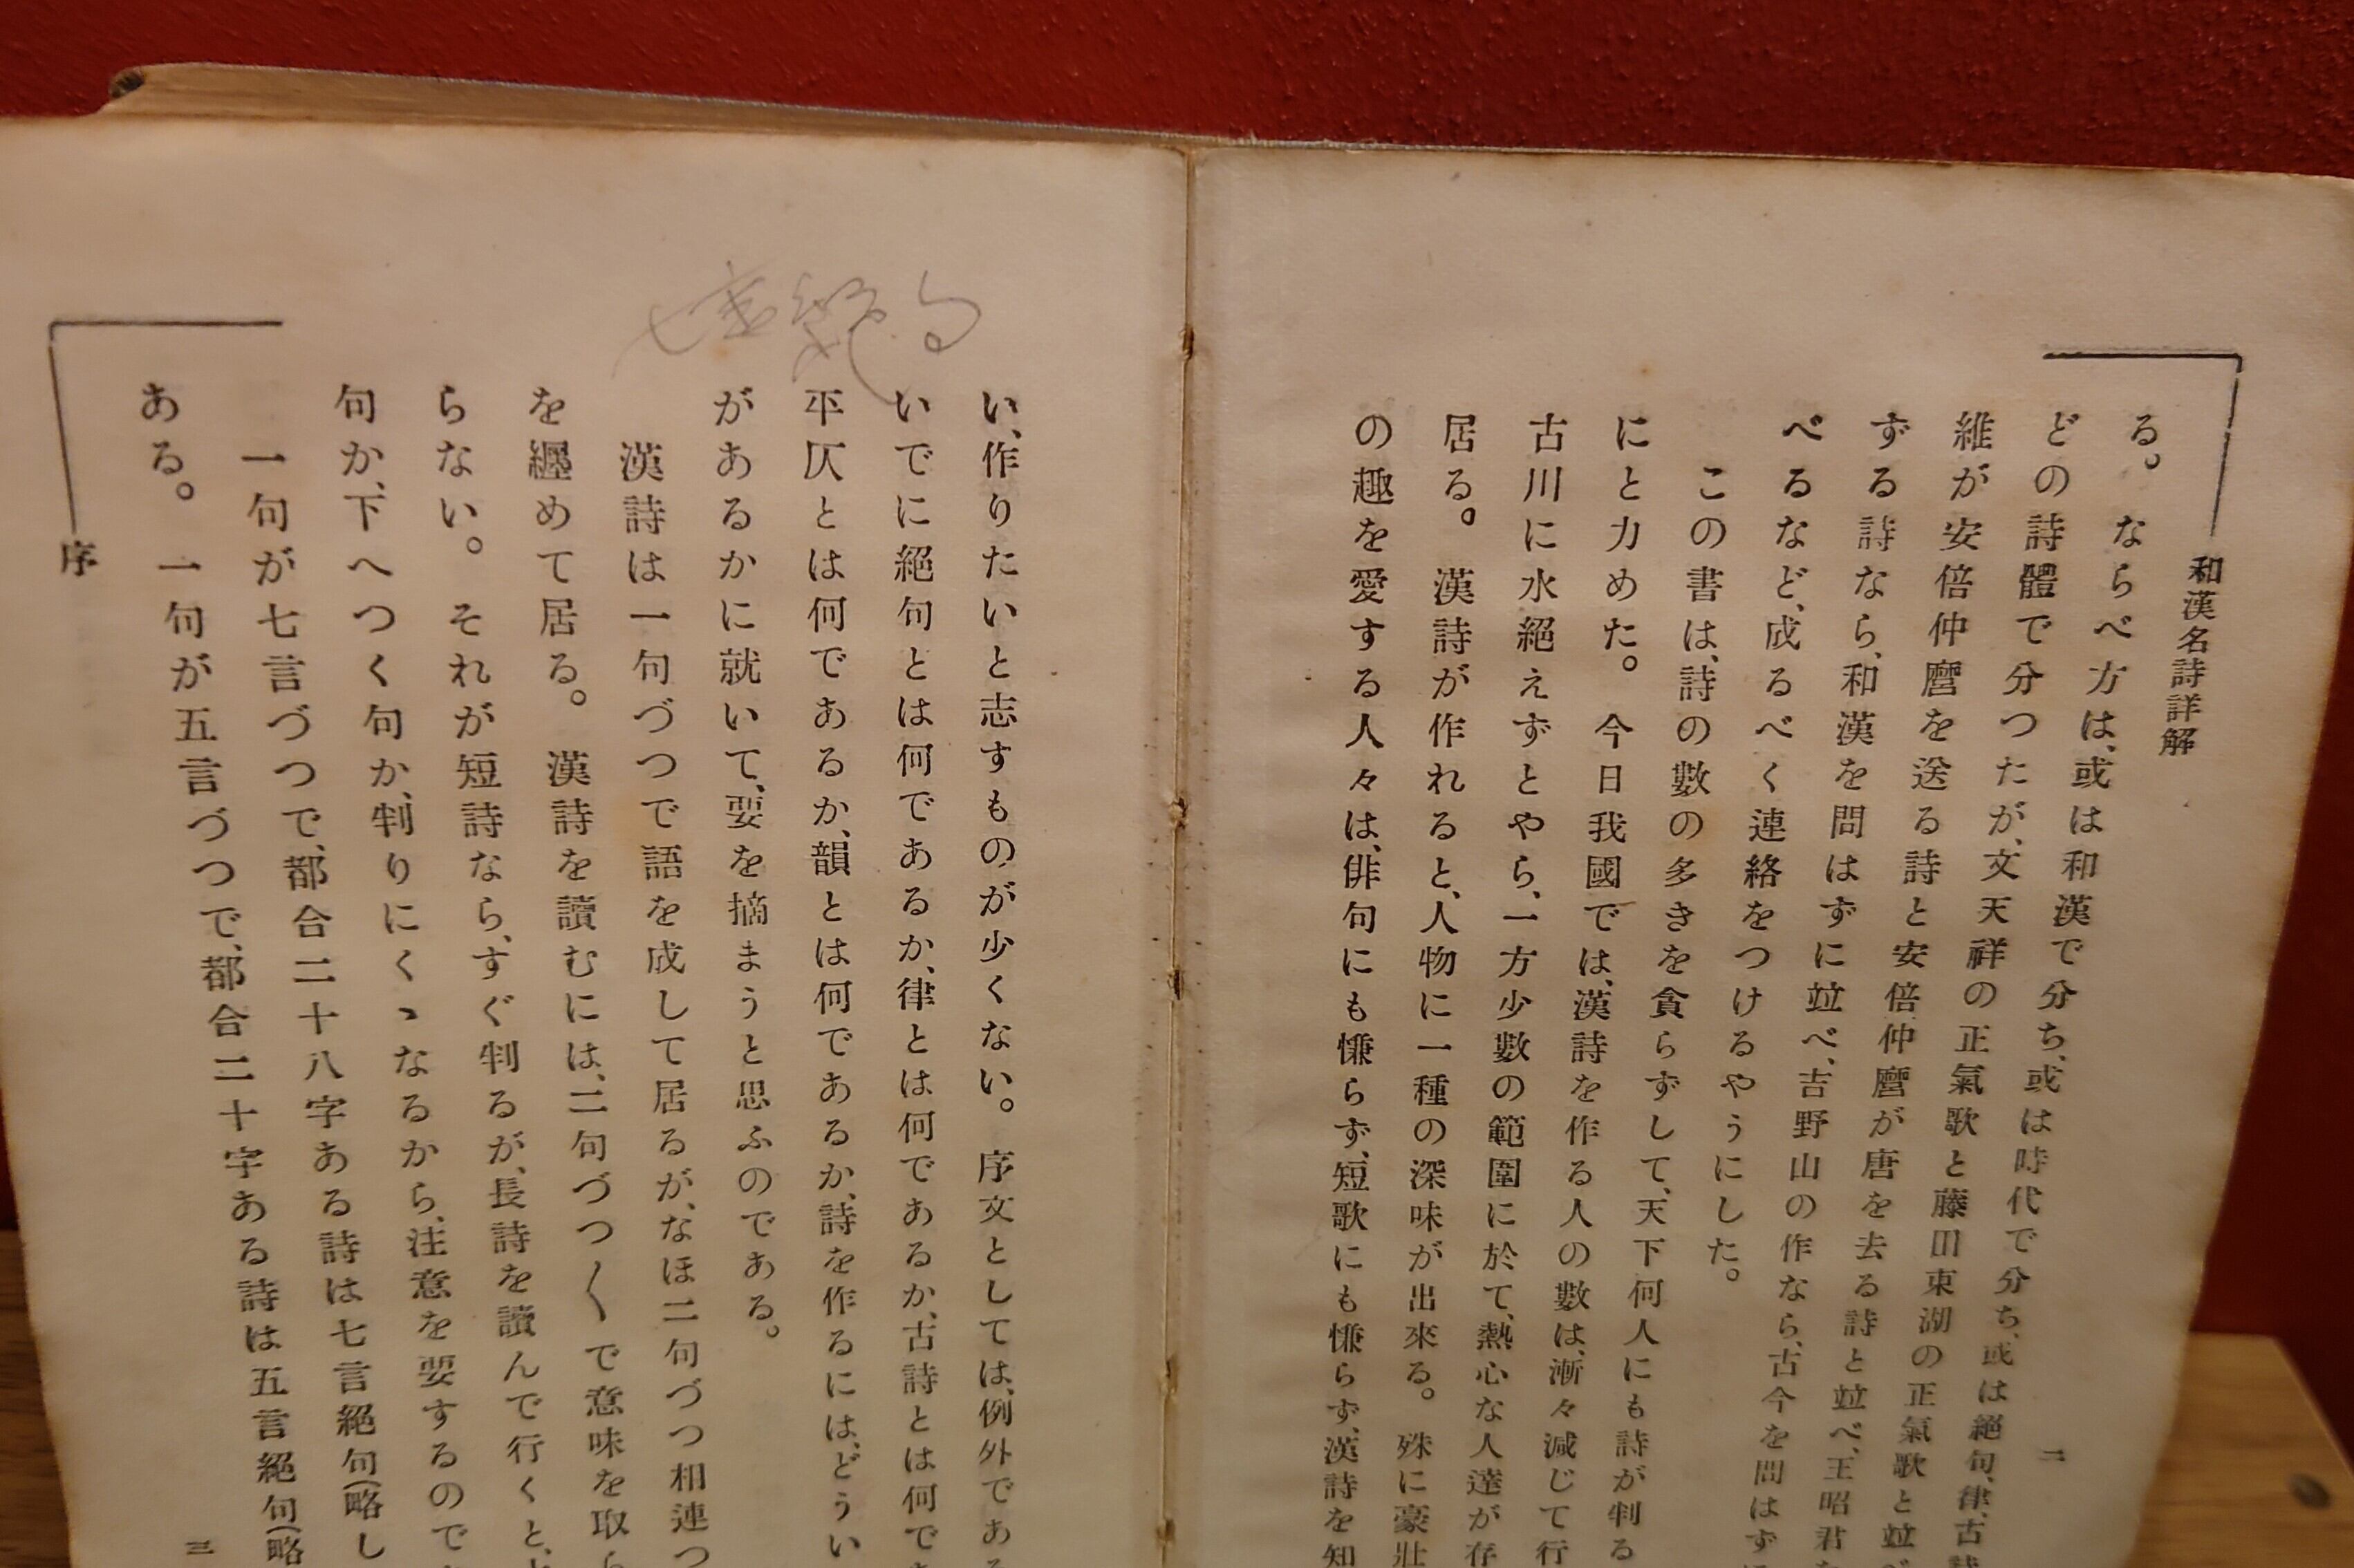 和漢名詩詳解
二
る。ならべ方は、或は和漢で分ち、或は時代で分ち、或は絕句、律、古詩
どの詩體で分つたが、文天祥の正氣歌と藤田東湖の正氣歌と竝べ
維が安倍仲麿を送る詩と安倍仲麿が唐を去る詩と竝べ、王昭君
ずる詩なら、和漢を問はずに竝べ、吉野山の作なら、古今を問はず
べるなど、成るべく連絡をつけるやうにした。
この書は、詩の數の多きを貪らずして、天下何人にも詩が判る
にと力めた。今日我國では、漢詩を作る人の數は、漸々減じて行
古川に水絕えずとやら、一方少數の範圍に於て、熱心な人達が存
居る。漢詩が作れると、人物に一種の深味が出來る。殊に豪壯
の趣を愛する人々は、俳句にも慊らず、短歌にも慊らず、漢詩を知
七言絶句
い、作りたいと志すものが少くない。序文としては、例外である
いでに絕句とは何であるか、律とは何であるか、古詩とは何で
平仄とは何であるか、韻とは何であるか、詩を作るにはどうい
があるかに就いて、要を摘まうと思ふのである。
漢詩は一句づつで語を成して居るが、なほ二句づつ相連つ
を纒めて居る。漢詩を讀むには、二句づつ〱で意味を取ら
らない。それが短詩なら、すぐ判るが、長詩を讀んで行くと、
句か、下へつく句か、判りにくゝなるから、注意を要するので
一句が七言づつで、都合二十八字ある詩は七言絕句(略し
ある。一句が五言づつで、都合二十字ある詩は五言絕句(略
序
三